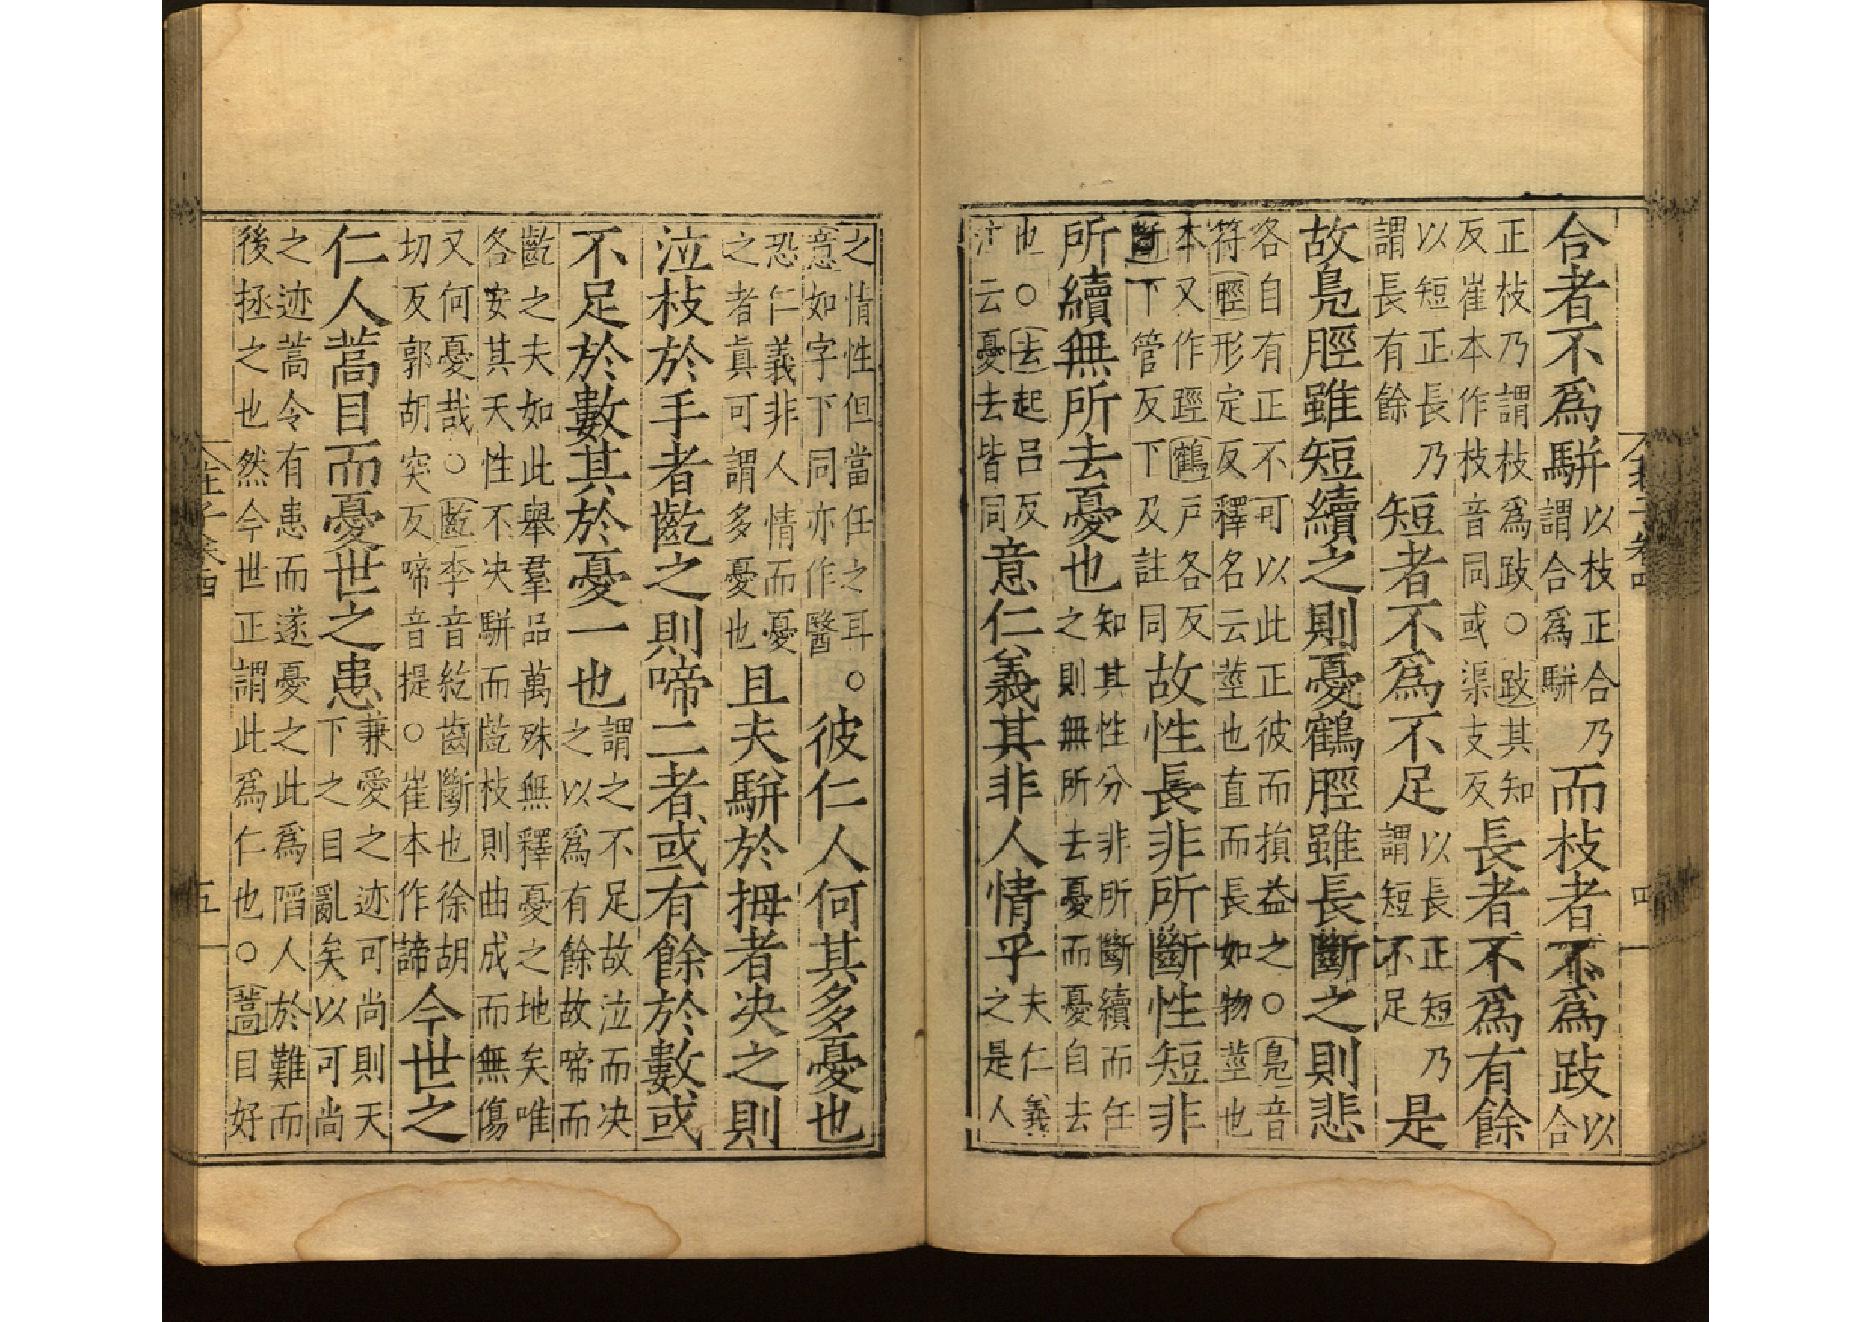 合者不爲駢以枝正合乃謂合爲駢而枝者不爲跂以合
正枝乃謂枝爲跂○跂其知反崔本作枝音同或渠支反長者不爲有餘
以短正長乃謂長有餘短者不爲不足以長正短乃謂短不足是
故鳧脛雖短續之則憂鶴脛雖長斷之則悲
各自有正不可以此正彼而損益之○鳧音符脛形定反釋名云莖也直而長如物莖也
本又作踁鶴戸各反斷下管反下及註同故性長非所斷性短非
所續無所去憂也知其性分非所斷續而任之則無所去憂而憂自去
也○去起呂反注云憂去皆同意仁義其非人情乎夫仁義之是人
之情性但當任之耳○意如字下同亦作醫彼仁人何其多憂也
恐仁義非人情而憂之者眞可謂多憂也且夫駢於拇者决之則
泣枝於手者齕之則啼二者或有餘於數或
不足於數其於憂一也謂之不足故泣而决之以爲有餘故啼而
齕之夫如此舉羣品萬殊無釋憂之地矣唯各安其天性不决駢而齕枝則曲成而無傷
又何憂哉○齕李音紇齒斷也徐胡切反郭胡突反啼音提○崔本作諦今世之
仁人蒿目而憂世之患兼愛之迹可尚則天下之目亂矣以可尚
之迹蒿令有患而遂憂之此爲陷人於難而後拯之也然今世正謂此爲仁也○蒿目好
莊子卷四
五